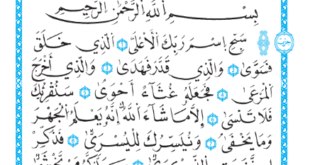 بِسْمِ اللَّهِ الرَّحْمَٰنِ الرَّحِيمِ
سَبِّحِ اسْمَ رَبِّكَ الْأَعْلَى ۝ الَّذِي خَلَقَ
فَسَوَّىٰ ۝ وَالَّذِي قَدَّرَ فَهَدَىٰ ۝ وَالَّذِي أَخْرَجَ
الْمَرْعَىٰ ۝ فَجَعَلَهُ غُثَاءً أَحْوَىٰ ۝ سَنُقْرِئُكَ
فَلَا تَنسَىٰ ۝ إِلَّا مَا شَاءَ اللَّهُ إِنَّهُ يَعْلَمُ الْجَهْرَ
وَمَا يَخْفَىٰ ۝ وَنُيَسِّرُكَ لِلْيُسْرَىٰ ۝ فَذَكِّرْ